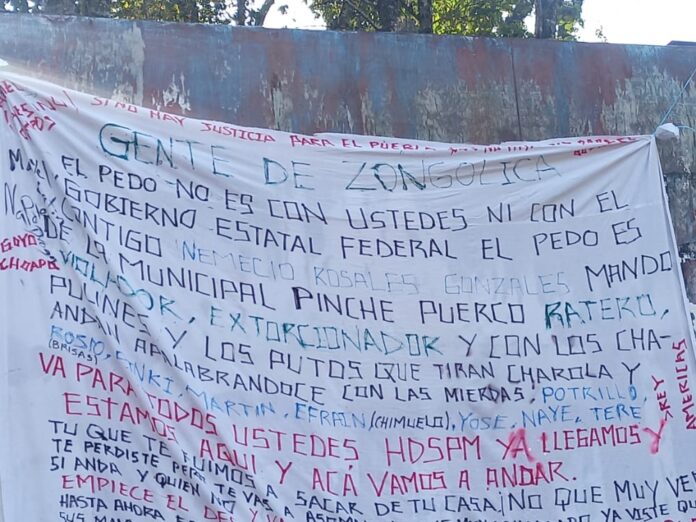 SI NO HAY JUSTICIA PARA EL PUEBLO
GENTE DE ZONGOLICA
EL PEDO NO ES CON USTEDES NI CON EL
GOBIERNO ESTATAL FEDERAL EL PEDO ES
CONTIGO NEMECIO ROSALES GONZALES MANDO
DE LA MUNICIPAL PINCHE PUERCO RATERO,
VIOLADOR, EXTORCIONADOR Y CON LOS CHA-
PULINES Y LOS PUTOS QUE TIRAN CHAROLA Y
ANDAN APALABRANDOCE CON LAS MIERDAS, POTRILLO,
ROSIO, (BRISAS) MARTIN, EFRAIN (CHIMUELO), YOSE, NAYE, TERE
GOYO
CHOAPA
REY
AMERICAS
VA PARA TODOS USTEDES HDSPM YA LLEGAMOS Y
ESTAMOS AQUI Y ACÁ VAMOS A ANDAR.
TU QUE TE FUIMOS A SACAR DE TU CASA ¡NO QUE MUY
TE PERDISTE PERO TE VAS A
SI ANDA Y QUIEN NO
EMPIECE EL
HASTA AHORA
SUS